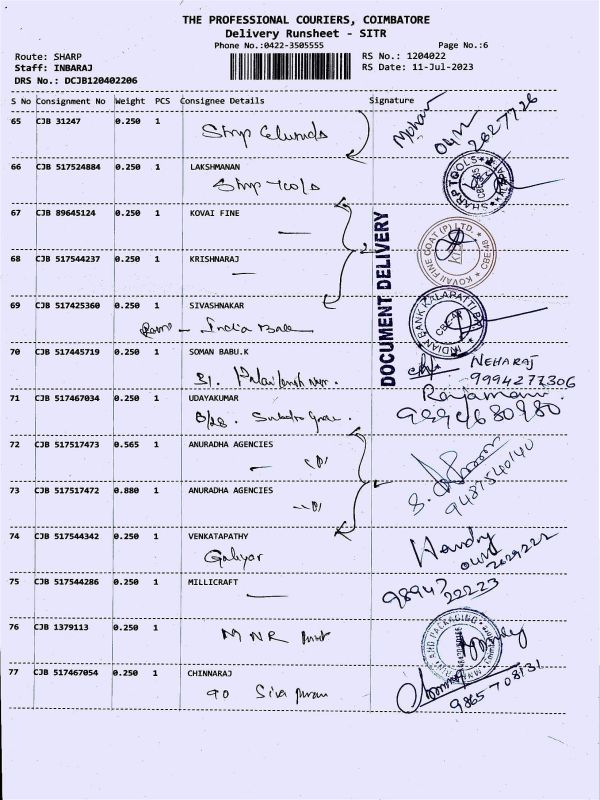 THE PROFESSIONAL COURIERS, COIMBATORE
Delivery Runsheet - SITR
Phone No.:0422-3505555
Page No.:6
Route: SHARP
RS No.: 1204022
Staff: INBARAJ
RS Date: 11-Jul-2023
DRS No.: DCJB120402206
S No Consignment No Weight PCS Consignee Details Signature
65 CJB 31247 0.250 1
Mohan
66 CJB 517524884 0.250 1 LAKSHMANAN
SHARP TOOLS
67 CJB 89645124 0.250 1 KOVAI FINE
KOVAI FINE COAT (P) LTD. CBE-48
DOCUMENT DELIVERY
68 CJB 517544237 0.250 1 KRISHNARAJ
69 CJB 517425360 0.250 1 SIVASHNAKAR
India Bank
INDIAN BANK KALAPATTI
70 CJB 517445719 0.250 1 SOMAN BABU.K
NEHARAJ
9994277306
71 CJB 517467034 0.250 1 UDAYAKUMAR
Rajamani
72 CJB 517517473 0.565 1 ANURADHA AGENCIES
9487540140
73 CJB 517517472 0.880 1 ANURADHA AGENCIES
74 CJB 517544342 0.250 1 VENKATAPATHY
75 CJB 517544286 0.250 1 MILLICRAFT
98947 22223
76 CJB 1379113 0.250 1
MNR
77 CJB 517467054 0.250 1 CHINNARAJ
90 Siva
9865708131